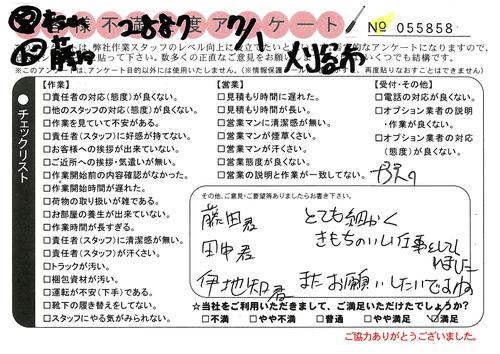 お客様不満足度アンケート
№ 055858
は、弊社作業スタッフのレベル向上に役立てたいと
な正直なご意見をお願い
※このアンケートは、アンケート目的以外には使用いたしません。
チェックリスト
【作業】
□責任者の対応(態度)が良くない。
□他のスタッフの対応(態度)が良くない。
□作業を見ていて不安がある。
□責任者(スタッフ)に好感が持てない。
□お客様への挨拶が出来ていない。
□ご近所への挨拶・気遣いが無い。
□作業開始前の内容確認がなかった。
□作業開始時間が遅れた。
□荷物の取り扱いが雑である。
□お部屋の養生が出来ていない。
□作業時間が長すぎる。
□責任者(スタッフ)に清潔感が無い。
□責任者(スタッフ)が汗くさい。
□トラックが汚い。
□梱包資材が汚い。
□運転が不安(下手)である。
□靴下の履き替えをしてない。
□スタッフにやる気がみられない。
【営業】
□見積もり時間に遅れた。
□見積もり時間が長い。
□営業マンに清潔感が無い。
□営業マンが煙草くさい。
□営業マンが汗くさい。
□営業態度が良くない。
□営業の説明と作業が一致してない。
【受付・その他】
□電話の対応が良くない。
□オプション業者の説明・作業が良くない。
□オプション業者の対応(態度)が良くない。
その他、ご意見・ご要望等ありましたらお書き下さい。
藤田君 とても細かく
田中君 きもちのいい仕事をして
伊地知君 またお願いしたいですね
☆当社をご利用いただきまして、ご満足いただけたでしょうか?
□不満 □やや不満 □普通 □やや満足 ☑満足
ご協力ありがとうございました。